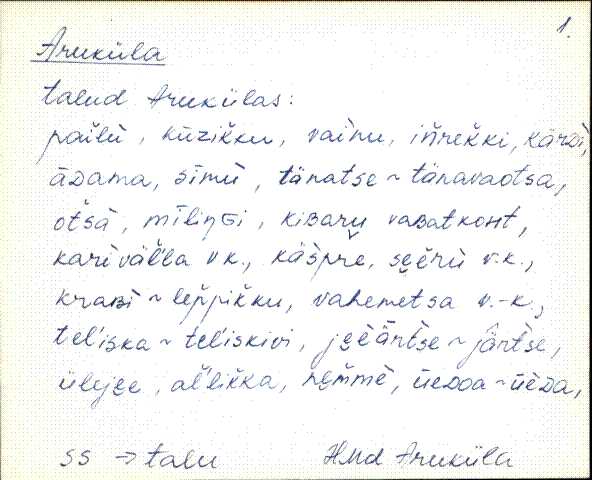 1.
Aruküla
talud Arukülas:
pail̆lù, kūzik̆ku, vaìnu, iñrek̆ki, kārDì,
āDama, sīmù, tänatse ~ tänavaotsa,
ot̆sà, mīliŋGi, kiBaru vaBatkoht,
karìväl̆la v.k., käs̆prè, sēērù v.k.,
kraBì ~ lep̆pik̆ku, vahemetsa v.-k.,
tel'iska ~ tel'iskivi, jēèänt̆se ~ jânt̆se,
ülejēe, al̆lik̆ka, nem̆mè, üeDoa ~ üèDa,
SS → talu HMd Aruküla